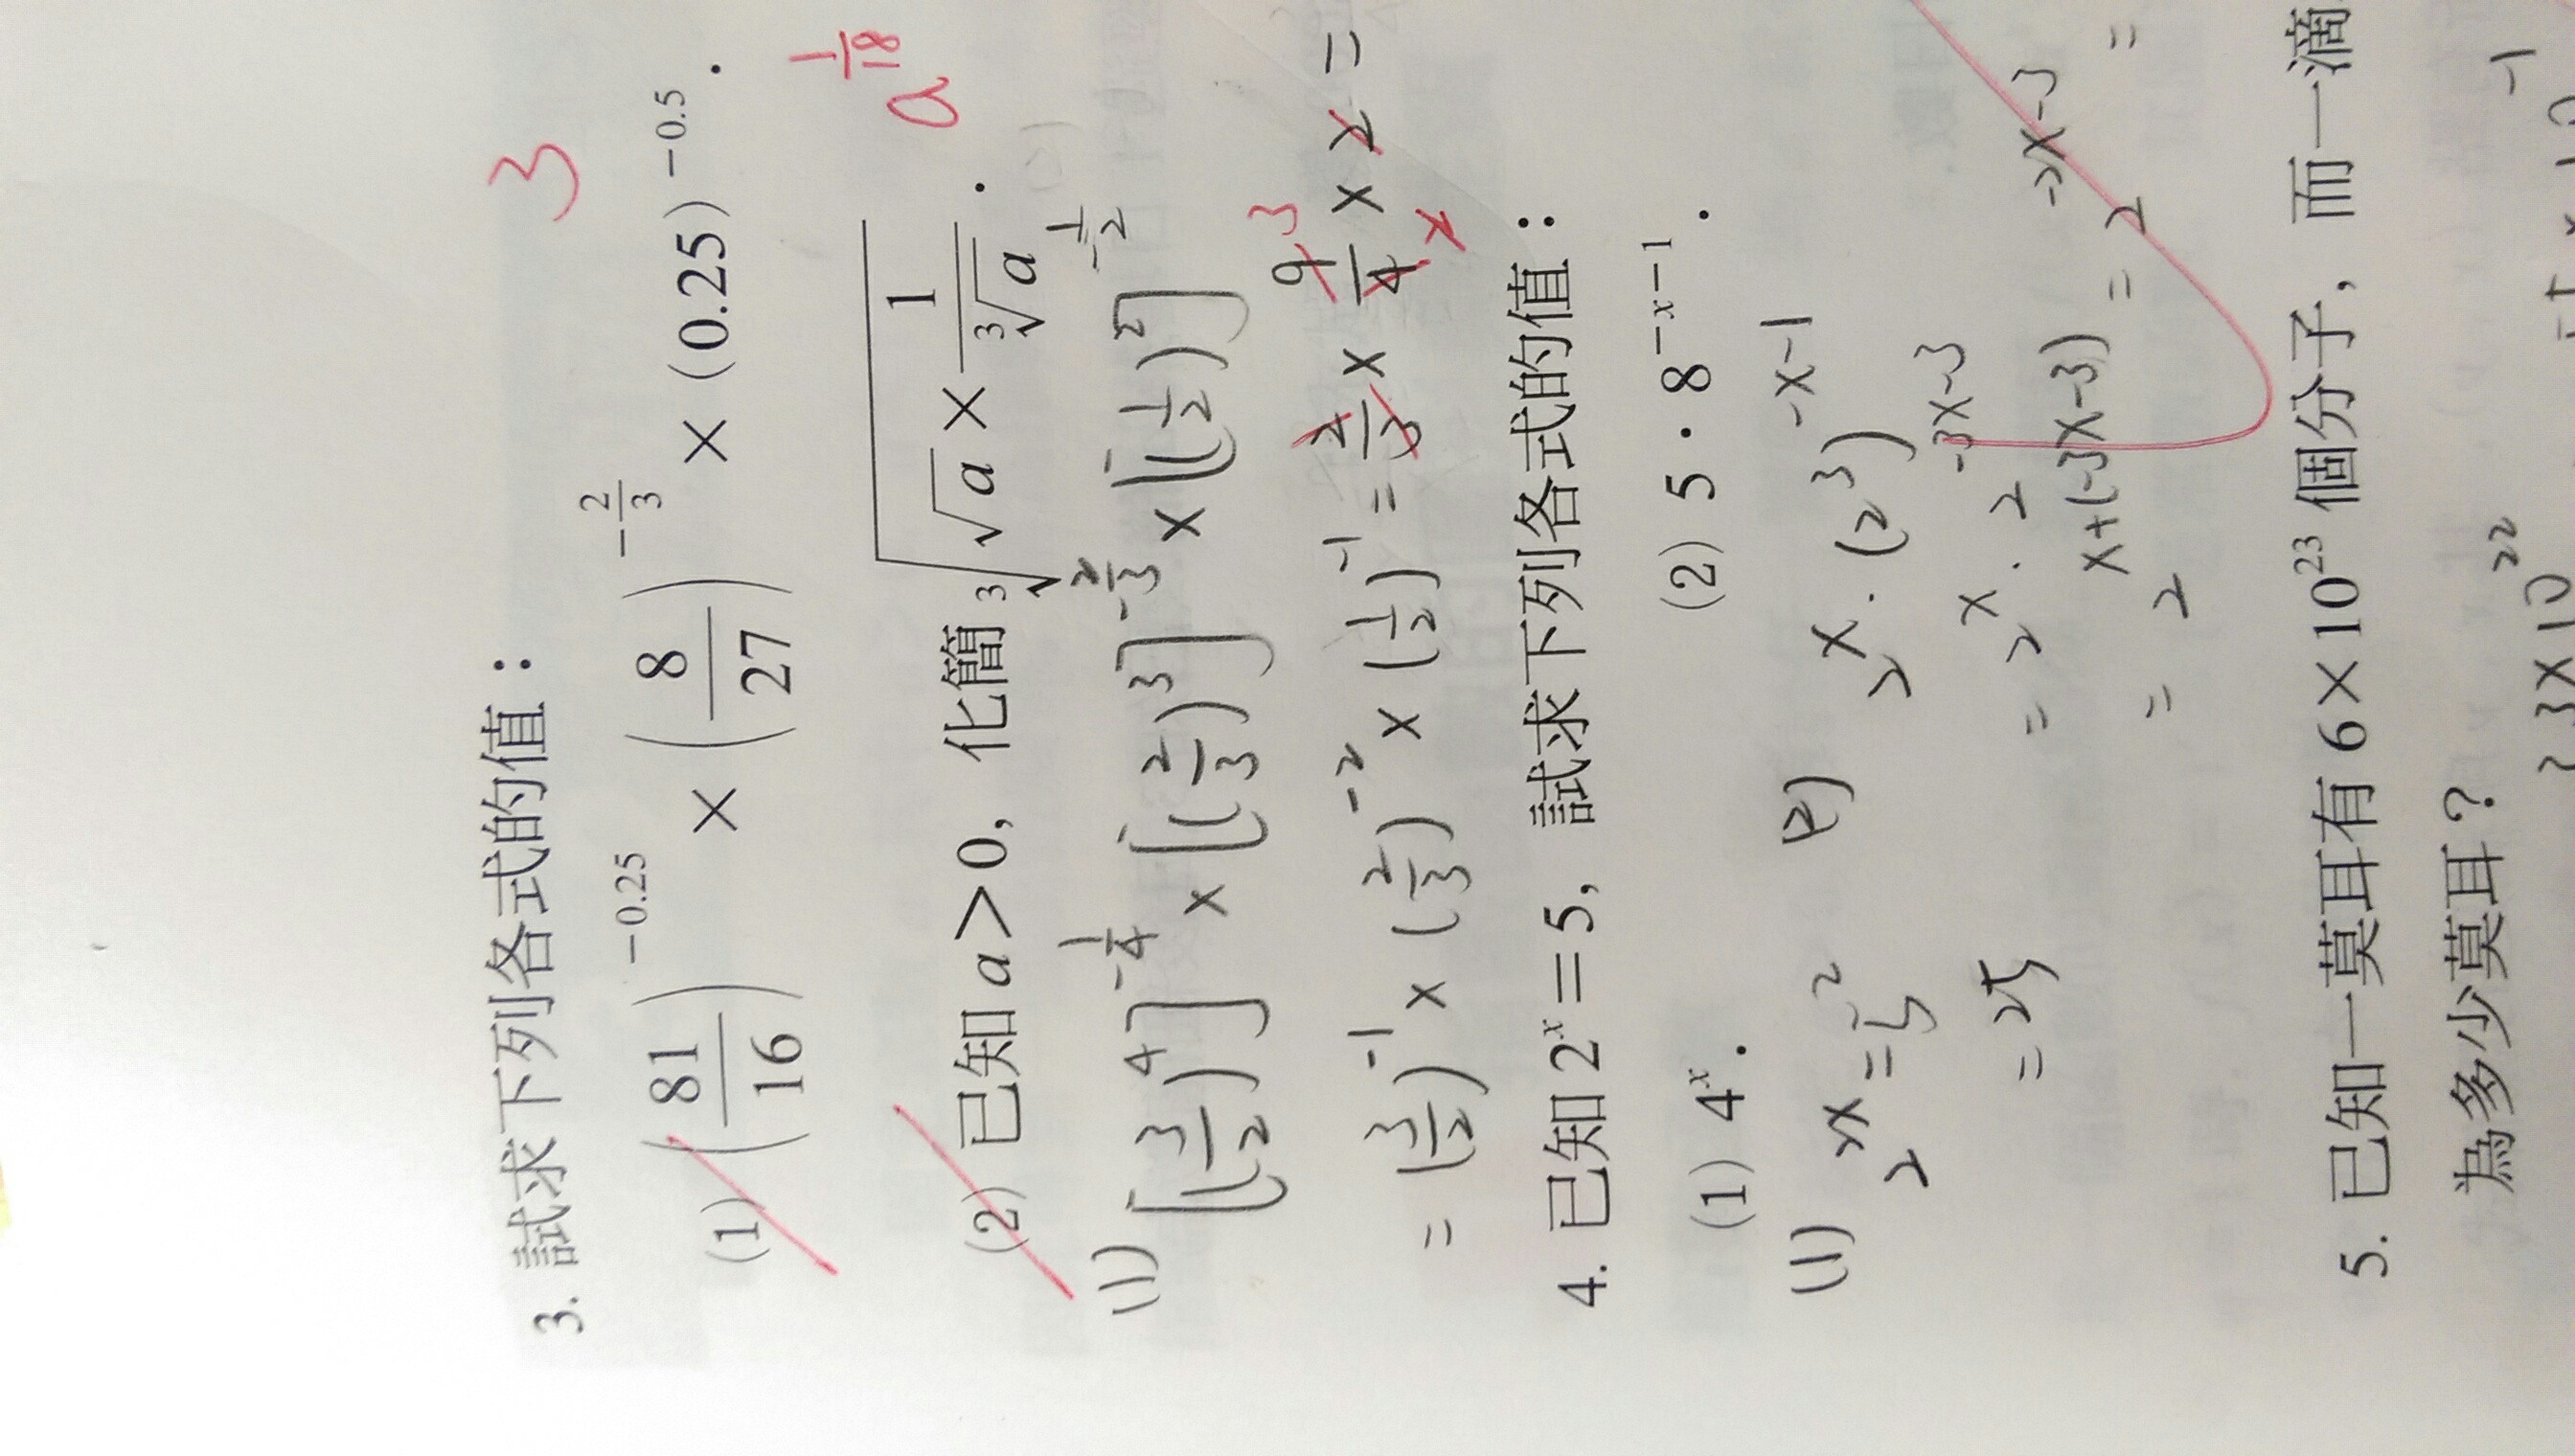 3. 試求下列各式的值：
3
(1) (81/16)^-0.25 × (8/27)^-2/3 × (0.25)^-0.5．
a^1/18
(2) 已知 a>0，化簡 ∛(√a × 1/∛a)．
(1) [(3/2)^4]^-1/4 × [(2/3)^3]^-2/3 × [(1/2)^2]^-1/2
= (3/2)^-1 × (2/3)^-2 × (1/2)^-1 = 2/3 × 9/4 × 2 =
3
2
4. 已知 2^x=5，試求下列各式的值：
(1) 4^x． (2) 5·8^-x-1．
(1) 2^2x = 5^2 (2) 2^x·(2^3)^-x-1
= 25 = 2^x·2^-3x-3
= 2^x+(-3x-3) = 2^-2x-3 =
5. 已知一莫耳有 6×10^23 個分子，而一滴
為多少莫耳？